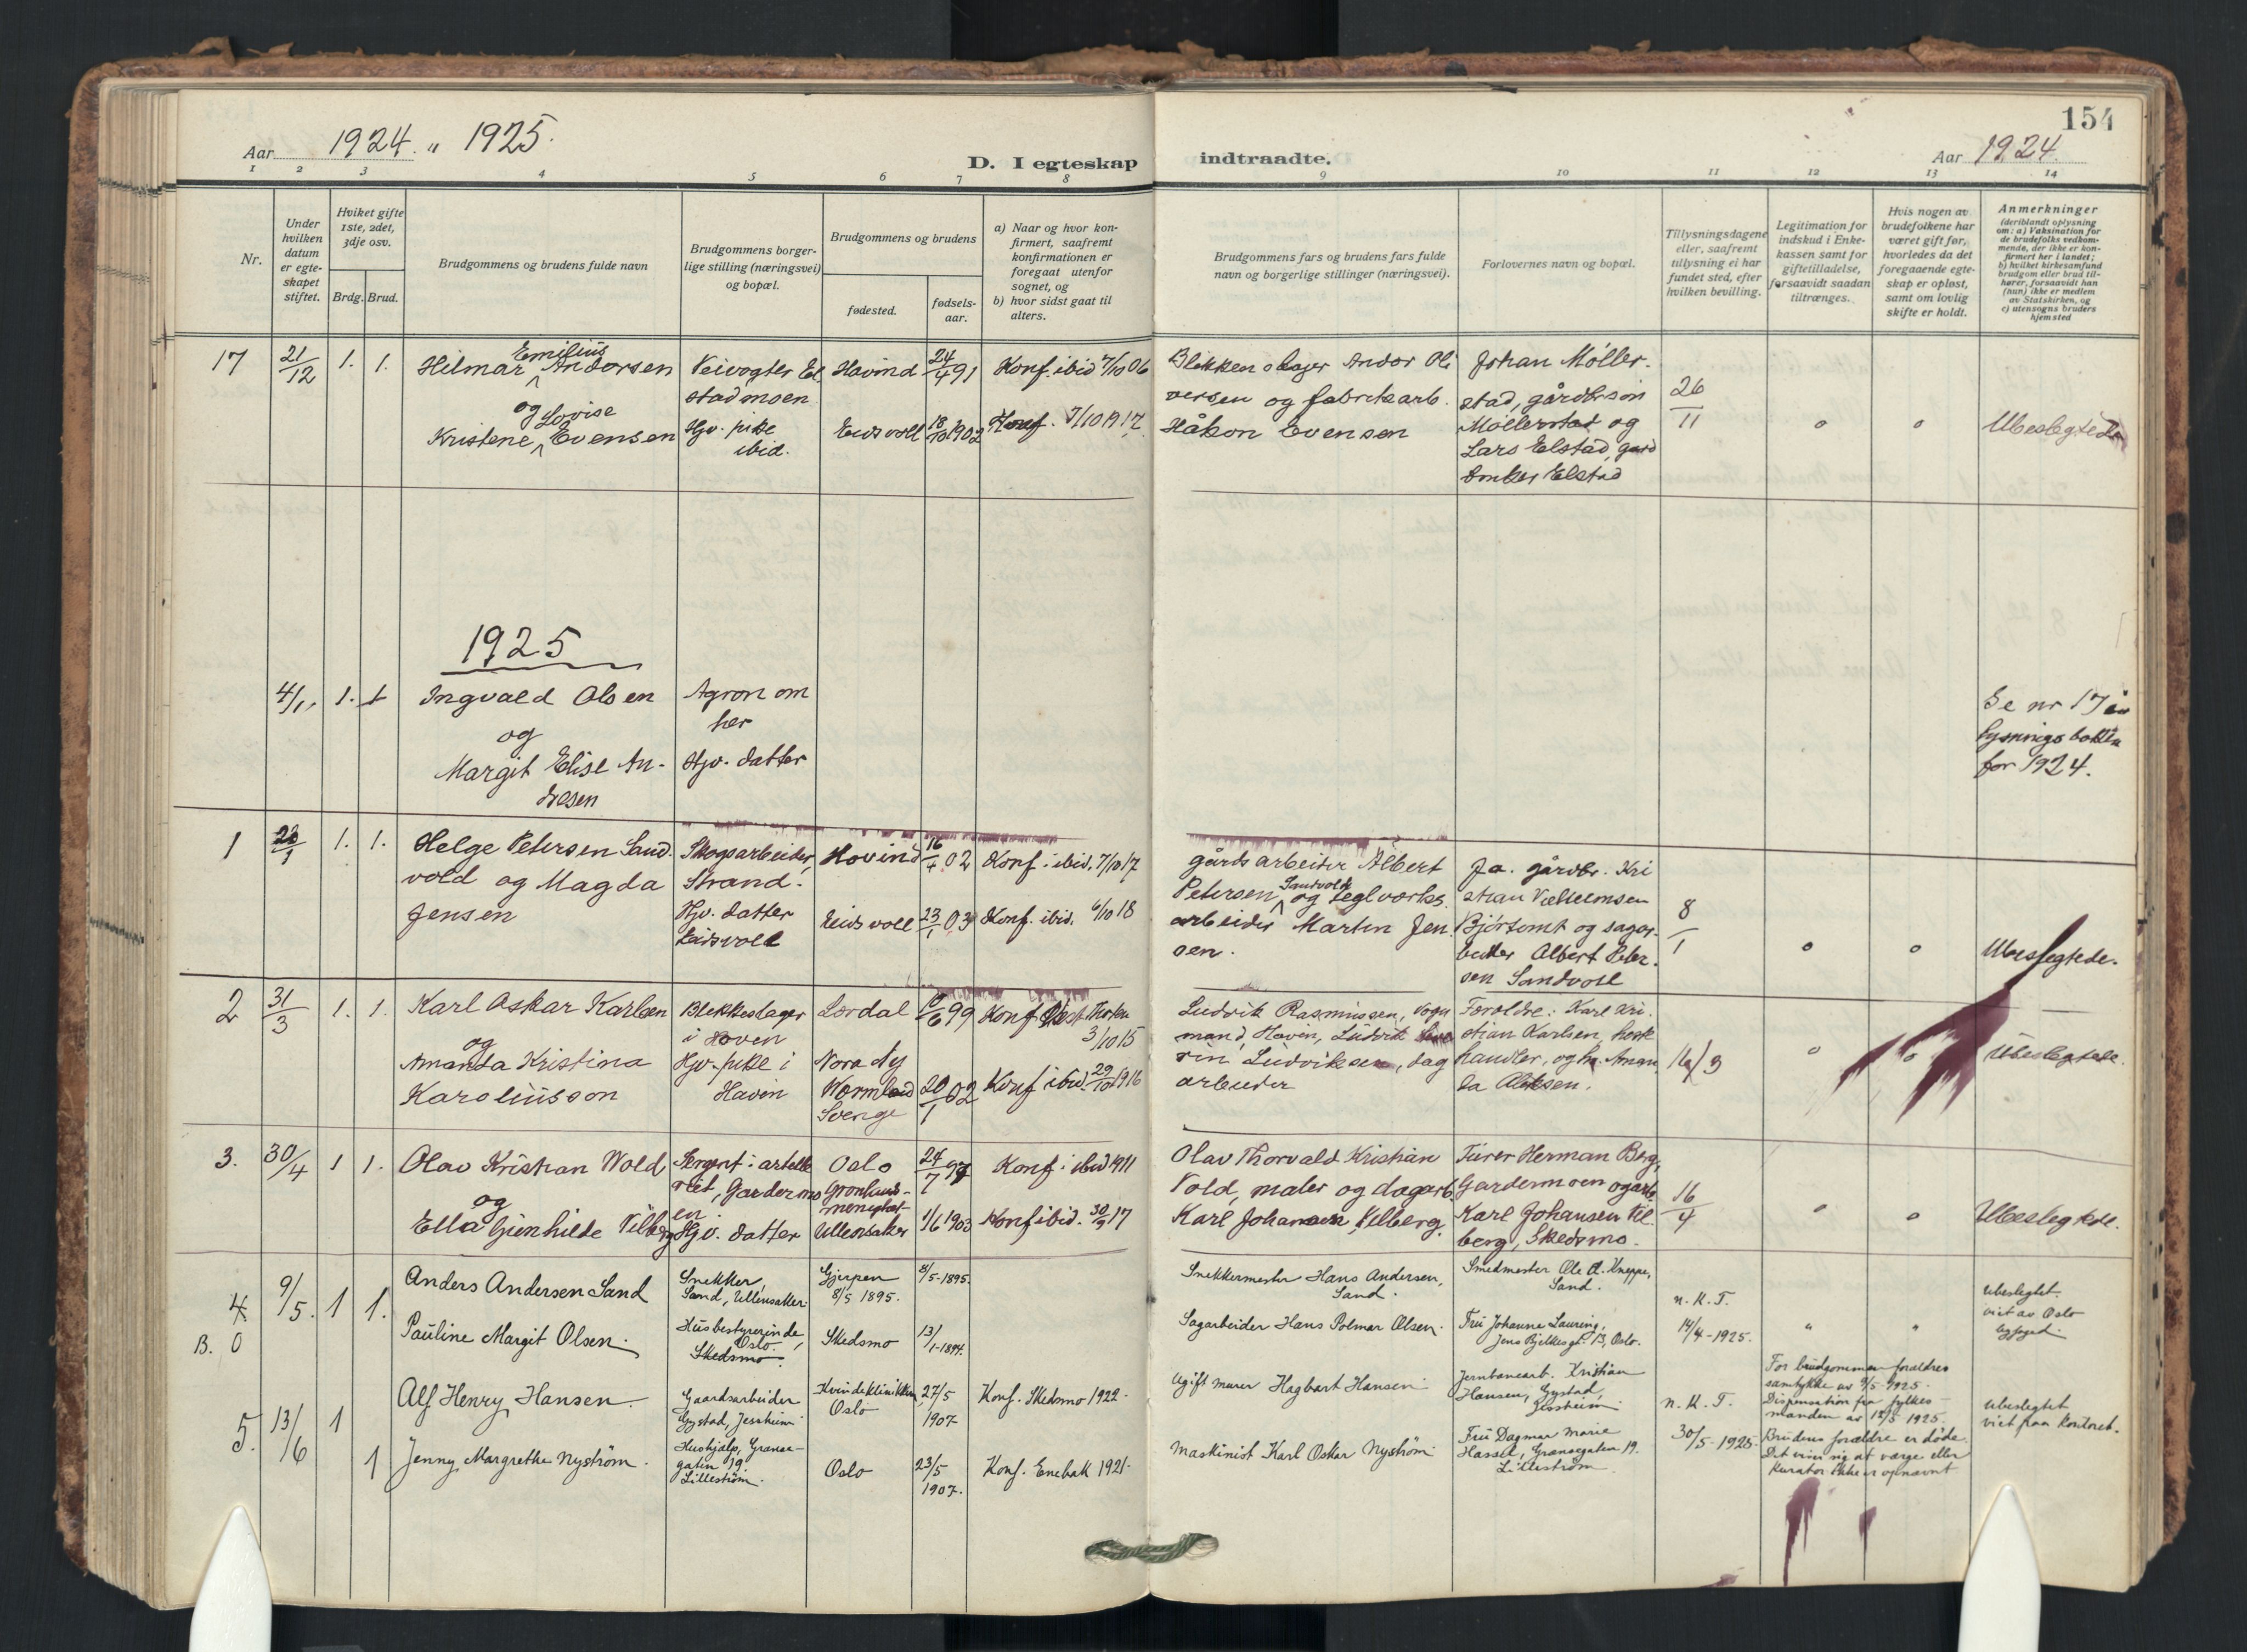 154
Aar 1924 " 1925.
D. I egteskap indtraadte.
Aar 1924.
1 2 3 4 5 6 7 8 9 10 11 12 13 14
Nr.
Under
hvilken
datum
er egte-
skapet
stiftet.
Hviket gifte
1ste, 2det,
3dje osv.
Brdg. Brud.
Brudgommens og brudens fulde navn
Brudgommens borger-
lige stilling (næringsvei)
og bopæl.
Brudgommens og brudens
fødested.
fødsels-
aar.
a) Naar og hvor kon-
firmert, saafremt
konfirmationen er
foregaat utenfor
sognet, og
b) hvor sidst gaat til
alters.
Brudgommens fars og brudens fars fulde
navn og borgerlige stillinger (næringsvei).
Forlovernes navn og bopæl.
Tillysningsdagene
eller, saafremt
tillysning ei har
fundet sted, efter
hvilken bevilling.
Legitimation for
indskud i Enke-
kassen samt for
giftetilladelse,
forsaavidt saadan
tiltrænges.
Hvis nogen av
brudefolkene har
været gift før,
hvorledes da det
foregaaende egte-
skap er opløst,
samt om lovlig
skifte er holdt.
Anmerkninger
(deriblandt oplysning
om: a) Vaksination for
de brudefolks vedkom-
mende, der ikke er kon-
firmert her i landet;
b) hvilket kirkesamfund
brudgom eller brud til-
hører, forsaavidt han
(hun) ikke er medlem
av Statskirken, og
c) utensogns bruders
hjemsted
17
21/12
1. 1.
Emilius
Hilmar Andorsen
og Lovise
Kristene Evensen
Veivogter El
stadmoen
Hjv. pike
ibid.
Hovind
Eidsvoll
24/4 91
18/10 1902
Konf. ibid 7/10 06
Konf. 7/10 1917
Blikkenslager Andor Oli
versen og fabrikarb.
Håkon Evensen
Johan Møller-
stad, gårdbr. søn
Møllerstad og
Lars Elstad, gård
bruker Elstad
26/11
o
o
Ubeslegtede
1925
4/1. 1. 1
Ingvald Olsen
og
Margit Elise An-
dresen
Agronom
her
Hjv. datter
Se nr 17 i
lysningsboken
for 1924.
1
1. 1.
Helge Petersen Sand-
vold og Magda
Jensen
Skogsarbeider,
Strand.
Hjv. datter
Eidsvoll
Hovind
Eidsvoll
16/4 02
23/1 03
Konf. ibid. 7/10 17
Konf. ibid. 6/10 18
gårdsarbeider Albert
Sandvold
Petersen og teglverks
arbeider Martin Jen
sen.
Fa. gårdbr. Kri
stian Vilhelmsen
Bjørtomt og sagar-
beider Albert Peter-
sen Sandvold
8/1
o
o
Ubeslegtede.
2
31/3
1. 1.
Karl Oskar Karlsen
og
Amanda Kristina
Karoliusson
Blikkeslager
i Hoven
Hjv. pike i
Hovin
Lørdal
Nora Ny
Wormland
Sverige
99
20/1 02
Konf.
3/10 15
Konf ibid. 29/10 1916
Ludvik Rasmussen, vogn
mand, Hovin, Ludvik
Ludviksen, dag
arbeider
Foreldre: Karl Kri
stian Karlsen, hest
handler, og fr. Aman
da
16/3
o
o
Ubeslegtede.
3.
30/4
1 1.
Olav Kristian Wold
og
Ella Gunhilde Vilberg
Sergent i artelle
riet, Gardermo
en
Hjv. datter
Oslo
Grønlands-
menighet
Ullensaker
24/7 97
1/6 1903
Konf i ibid 1911
Konf ibid. 30/9 17
Olav Thorvald Kristian
Vold, maler og dagarb.
Karl Johansen Vilberg.
Furer Herman Berg,
Gardermoen og arb.
Karl Johansen Vil
berg, Skedsmo.
16/4
o
o
Ubeslegtede.
4.
B. 0
9/5.
1 1.
Anders Andersen Sand
Pauline Margit Olsen.
Snekker,
Sand, Ullensaker.
Husbestyrerinde,
Oslo.
Skedsmo.
Gjerpen
8/5 1895.
Skedsmo
8/5-1895.
13/1-1894.
Snekkermester Hans Andersen,
Sand.
Sagarbeider Hans Polmar Olsen.
Smedmester Ole A. Kneppe,
Sand.
Fru Johanne Lauring,
Jens Bjelkesgt. 13, Oslo.
n. K. T.
14/4-1925.
"
"
ubeslegtet.
viet av Oslo
byfoged.
5.
13/6
1
1
Alf Henry Hansen.
Jenny Margrethe Nystrøm.
Gaardsarbeider
Gystad, Jessheim
Hushjælp, Grænse-
gaten 19.
Lillestrøm.
Kvindeklinikken,
Oslo
Oslo
27/5
1907
23/5
1907.
Konf. Skedsmo 1922.
Konf. Enebak 1921.
Ugift murer Hagbart Hansen
Maskinist Karl Oskar Nystrøm.
Jernbanearb. Kristian
Hansen, Gystad,
Jessheim.
Fru Dagmar Marie
Hassel, Grænsegaten 19.
Lillestrøm
n. K. T.
30/5-1925.
For brudgommen forældres
samtykke av 9/5 1925.
Dispensation fra fylkes-
manden av 18/5 1925.
Brudens forældre er døde.
Det viser sig at værge eller
Kurator ikke er opnævnt
ubeslegtet
viet paa kontoret.